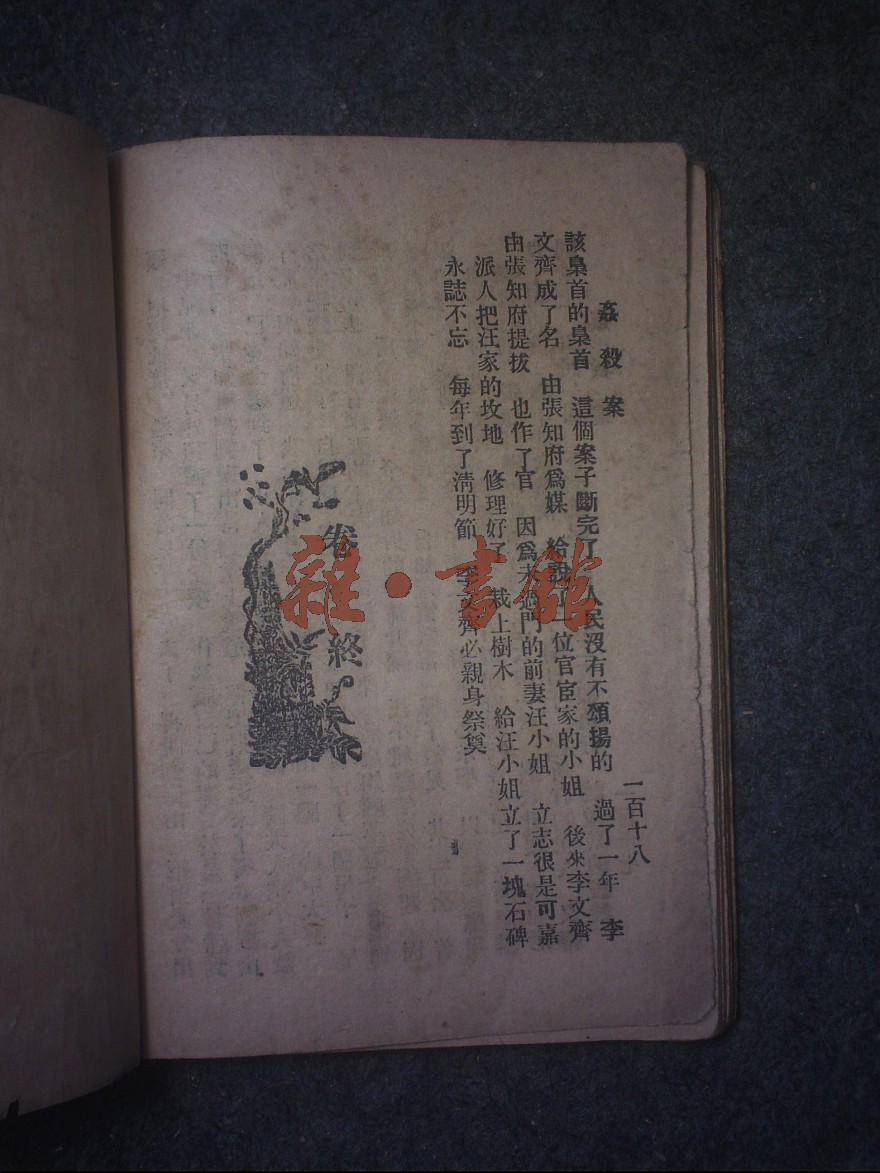 姦殺案
二百十八
該梟首的梟首　這個案子斷完了　人民沒有不頌揚的　過了一年　李
文齊成了名　由張知府爲媒　給說　一位官宦家的小姐　後來李文齊
由張知府提拔　也作了官　因爲未過門的前妻汪小姐　立志很是可嘉
派人把汪家的坟地　修理好了　栽上樹木　給汪小姐立了一塊石碑
永誌不忘　每年到了淸明節　李文齊必親身祭奠
卷終
雜·書館